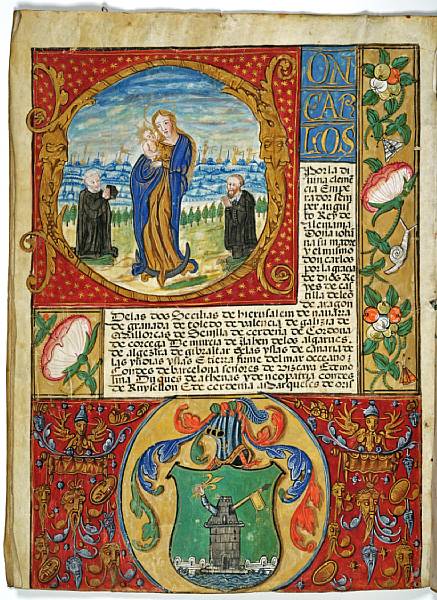 ON
CAR
LOS
Por la di
uina clemē
cia Empe
rador sem
per augus
to Rey de
Alemania
Dona ioha
na su madre
y el mismo
don carlos
por la gracia
de Dios Re
yes de cas
tilla de leō
de aragon
Delas dos Secilias de Hierusalem de nauarra
de granada de toledo de valencia de galizia de
Mallorcas de Seuilla de cerdeña de Cordoua
de corcega De murcia de Jahen de los algarues.
de algezira de gibraltar de las yslas de Canaria
las yndias yslas E tierra firme del mar oceano:
Condes de barcelona señores de vizcaya E de mo
lina Duques de athenas y de neopatria condes
de Ruysellon E de cerdenia Marqueses de oris